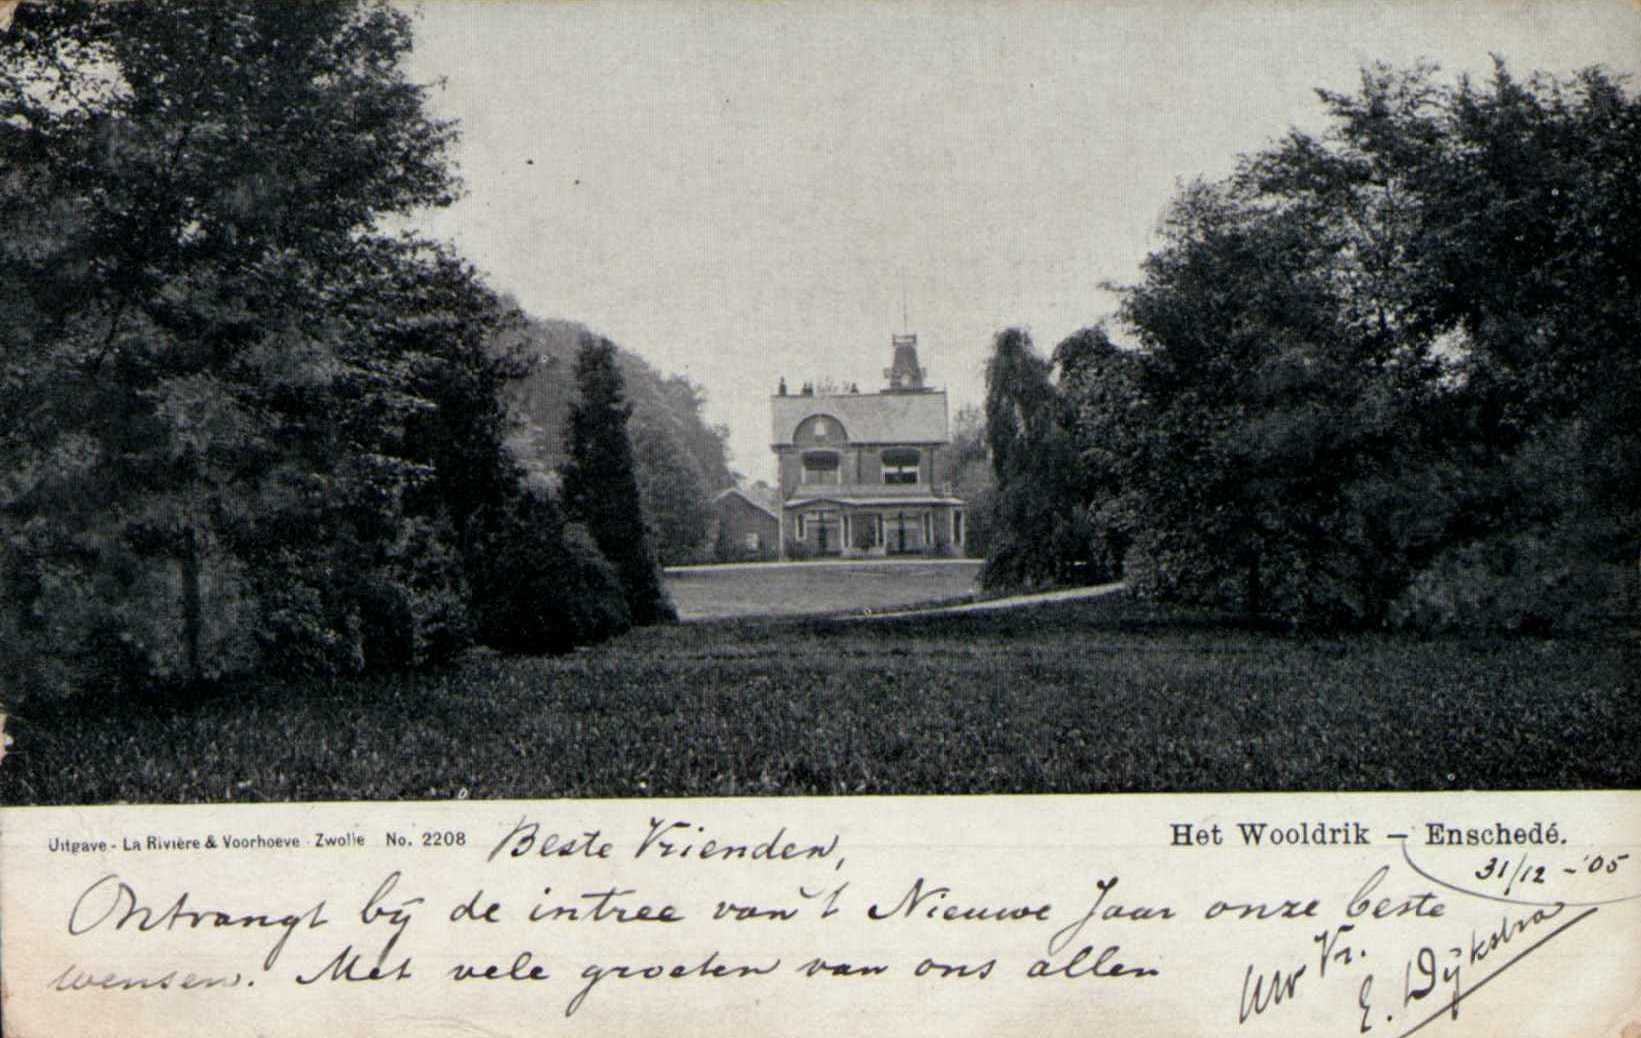 Uitgave - La Rivière & Voorhoeve Zwolle No. 2208
Het Wooldrik – Enschedé.
31/12 - '05
Beste Vrienden,
Ontvangt bij de intree van 't Nieuwe Jaar onze beste
wensen. Met vele groeten van ons allen
Uw Vr.
E. Dijkstra